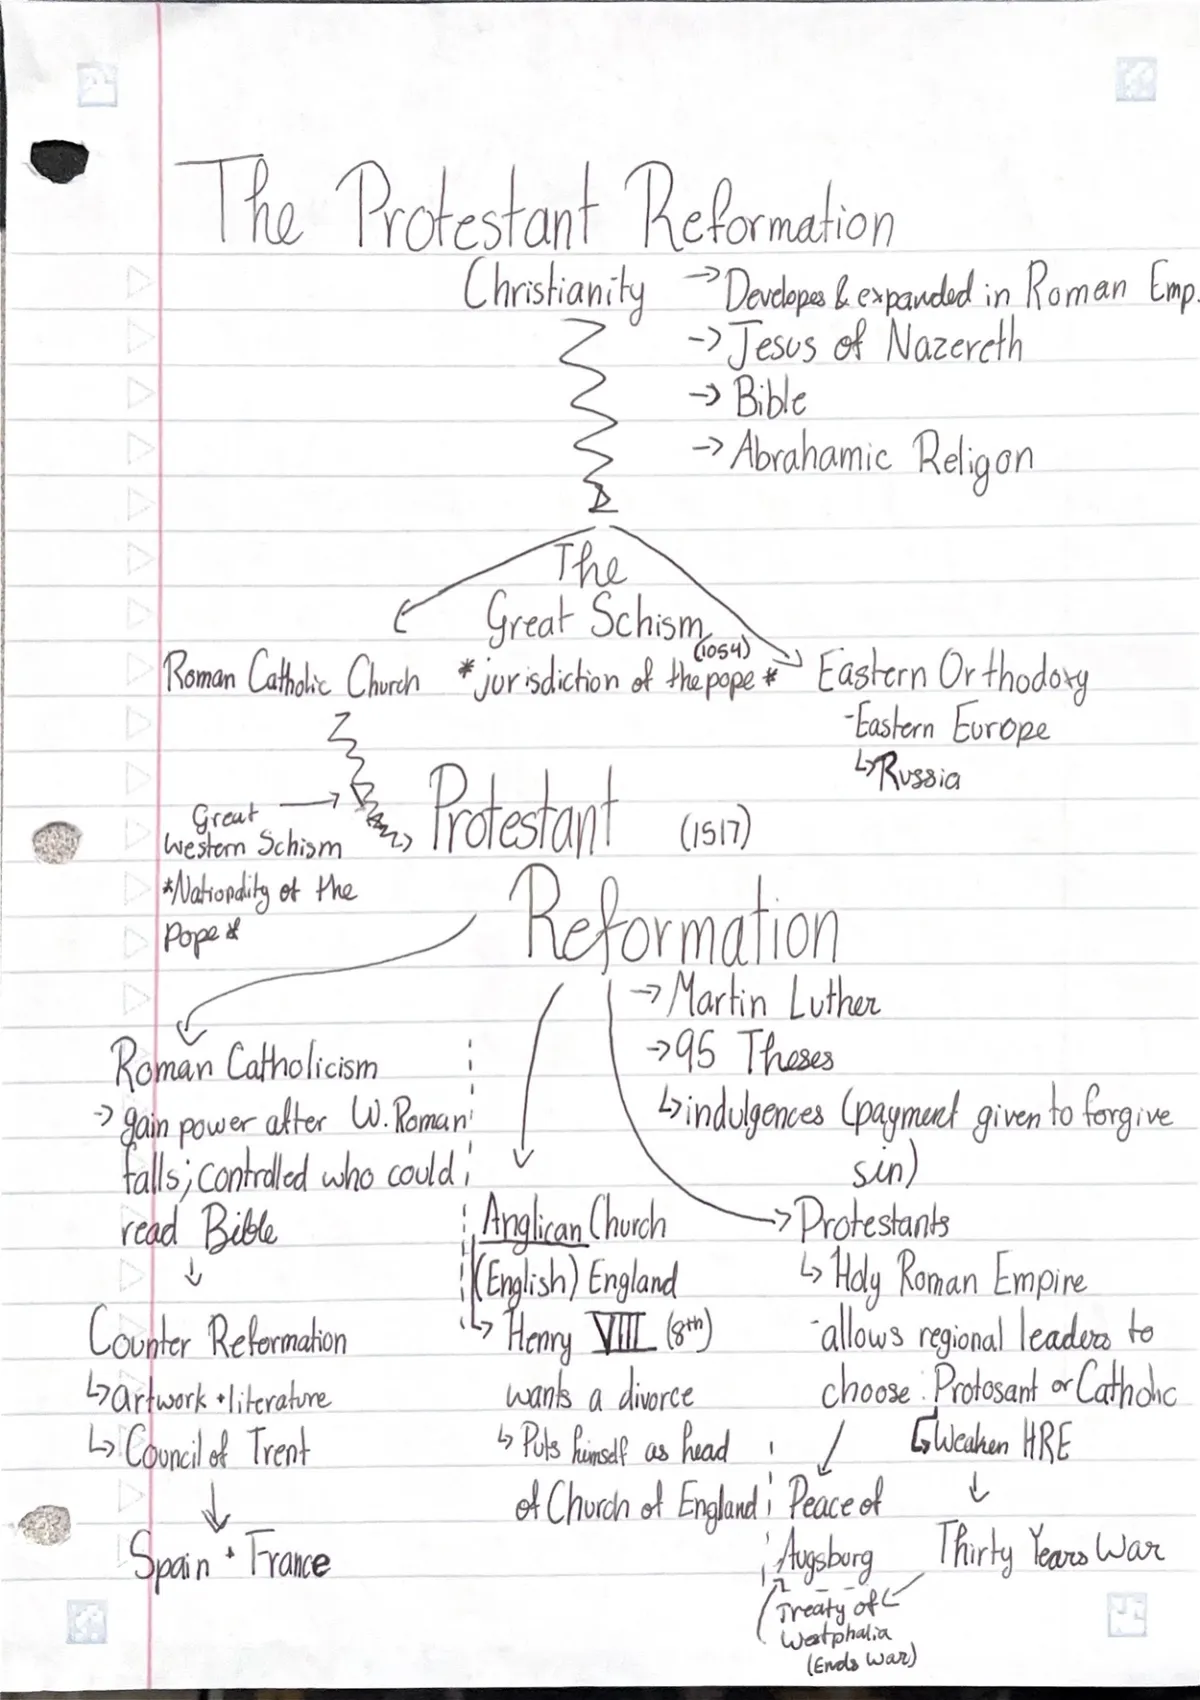 The Protestant Reformation
Christianity
→ Developes & expanded in Roman Emp.
→ Jesus of Nazereth
→ Bible
→ Abrahamic Religon
The
Great Schism
(1054)
*jurisdiction of the pope*
Roman Catholic Church
Eastern Orthodoxy
-Eastern Europe
↳ Russia
Great →
Western Schism
*Nationality of the
Pope*
Protestant (1517)
Reformation
→ Martin Luther
→ 95 Theses
↳ indulgences (payment given to forgive
sin)
Roman Catholicism
→ gain power after W. Roman
falls; controlled who could
read Bible
↓
Counter Reformation
↳ artwork + literature
↳ Council of Trent
↓
Spain + France
Anglican Church
(English) England
↳ Henry VIII (8th)
wants a divorce
↳ Puts himself as head
of Church of England
→ Protestants
↳ Holy Roman Empire
-allows regional leaders to
choose: Protosant or Catholic
↳ Weaken HRE
↓
Thirty Years War
Peace of
Augsburg
Treaty of
Westphalia
(Ends War)